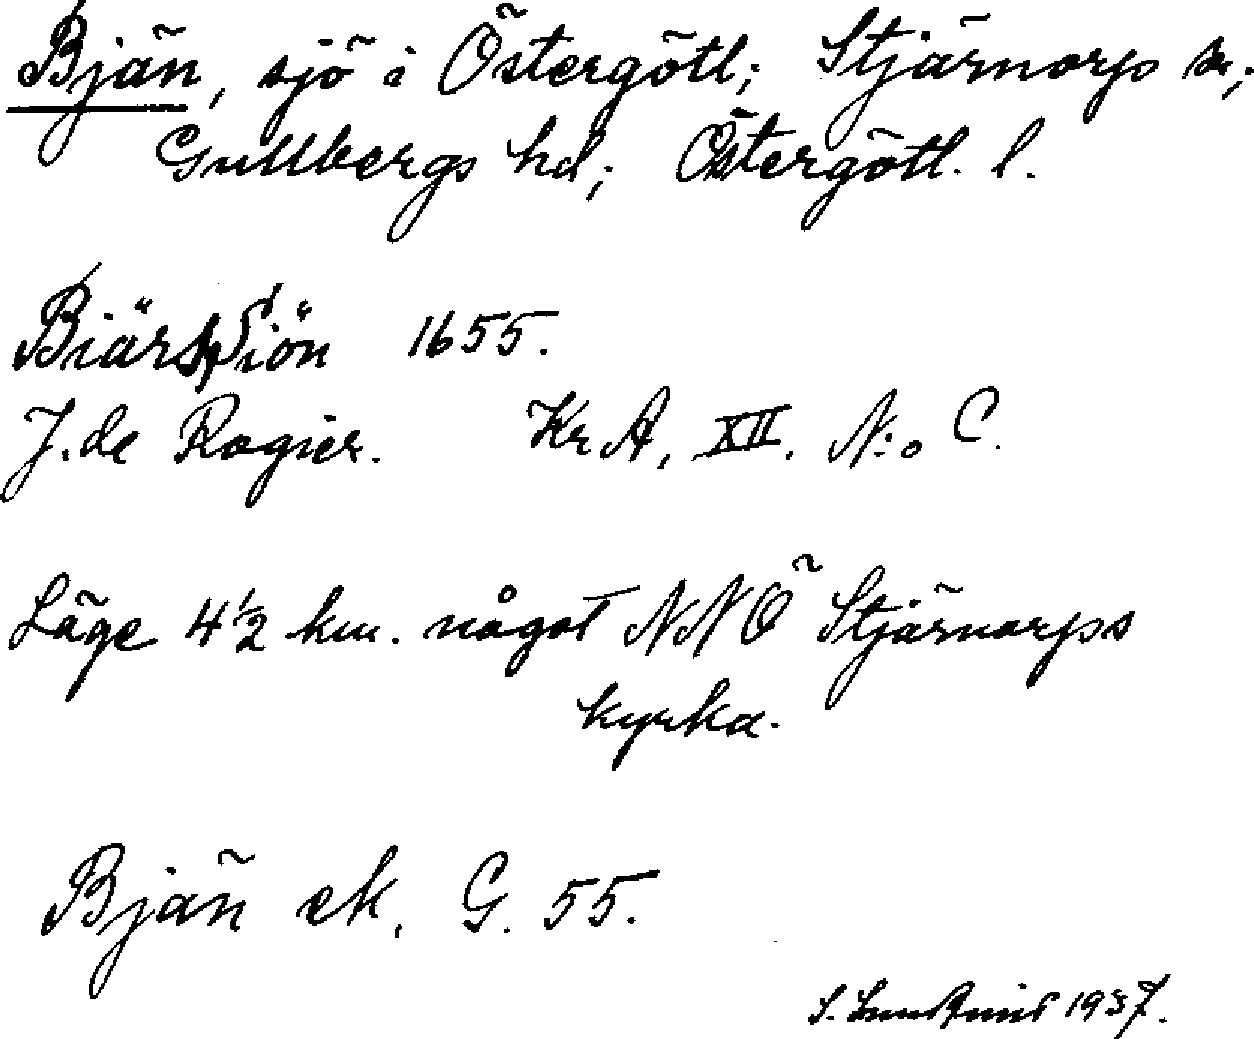 Bjän, sjö i Östergötl; Stjärnorps sn,;
Gullbergs hd; Östergötl. l.
Biärssiön 1655.
J. de Rogier. Kr A, XII. N:o C.
Läge 4 1/2 km. något NNÖ Stjärnorps
kyrka.
Bjän ek. G. 55.
1937.